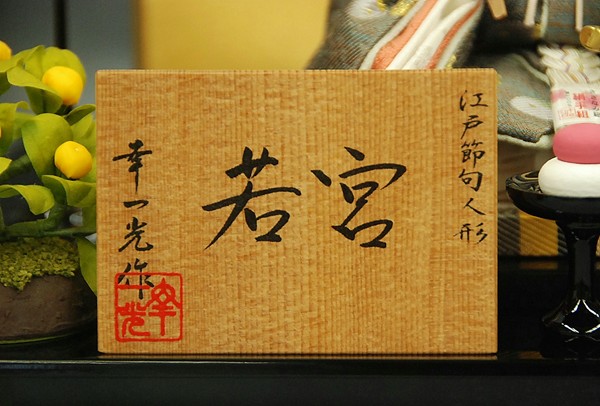 江戸節句人形
若宮
幸一光作
幸一光